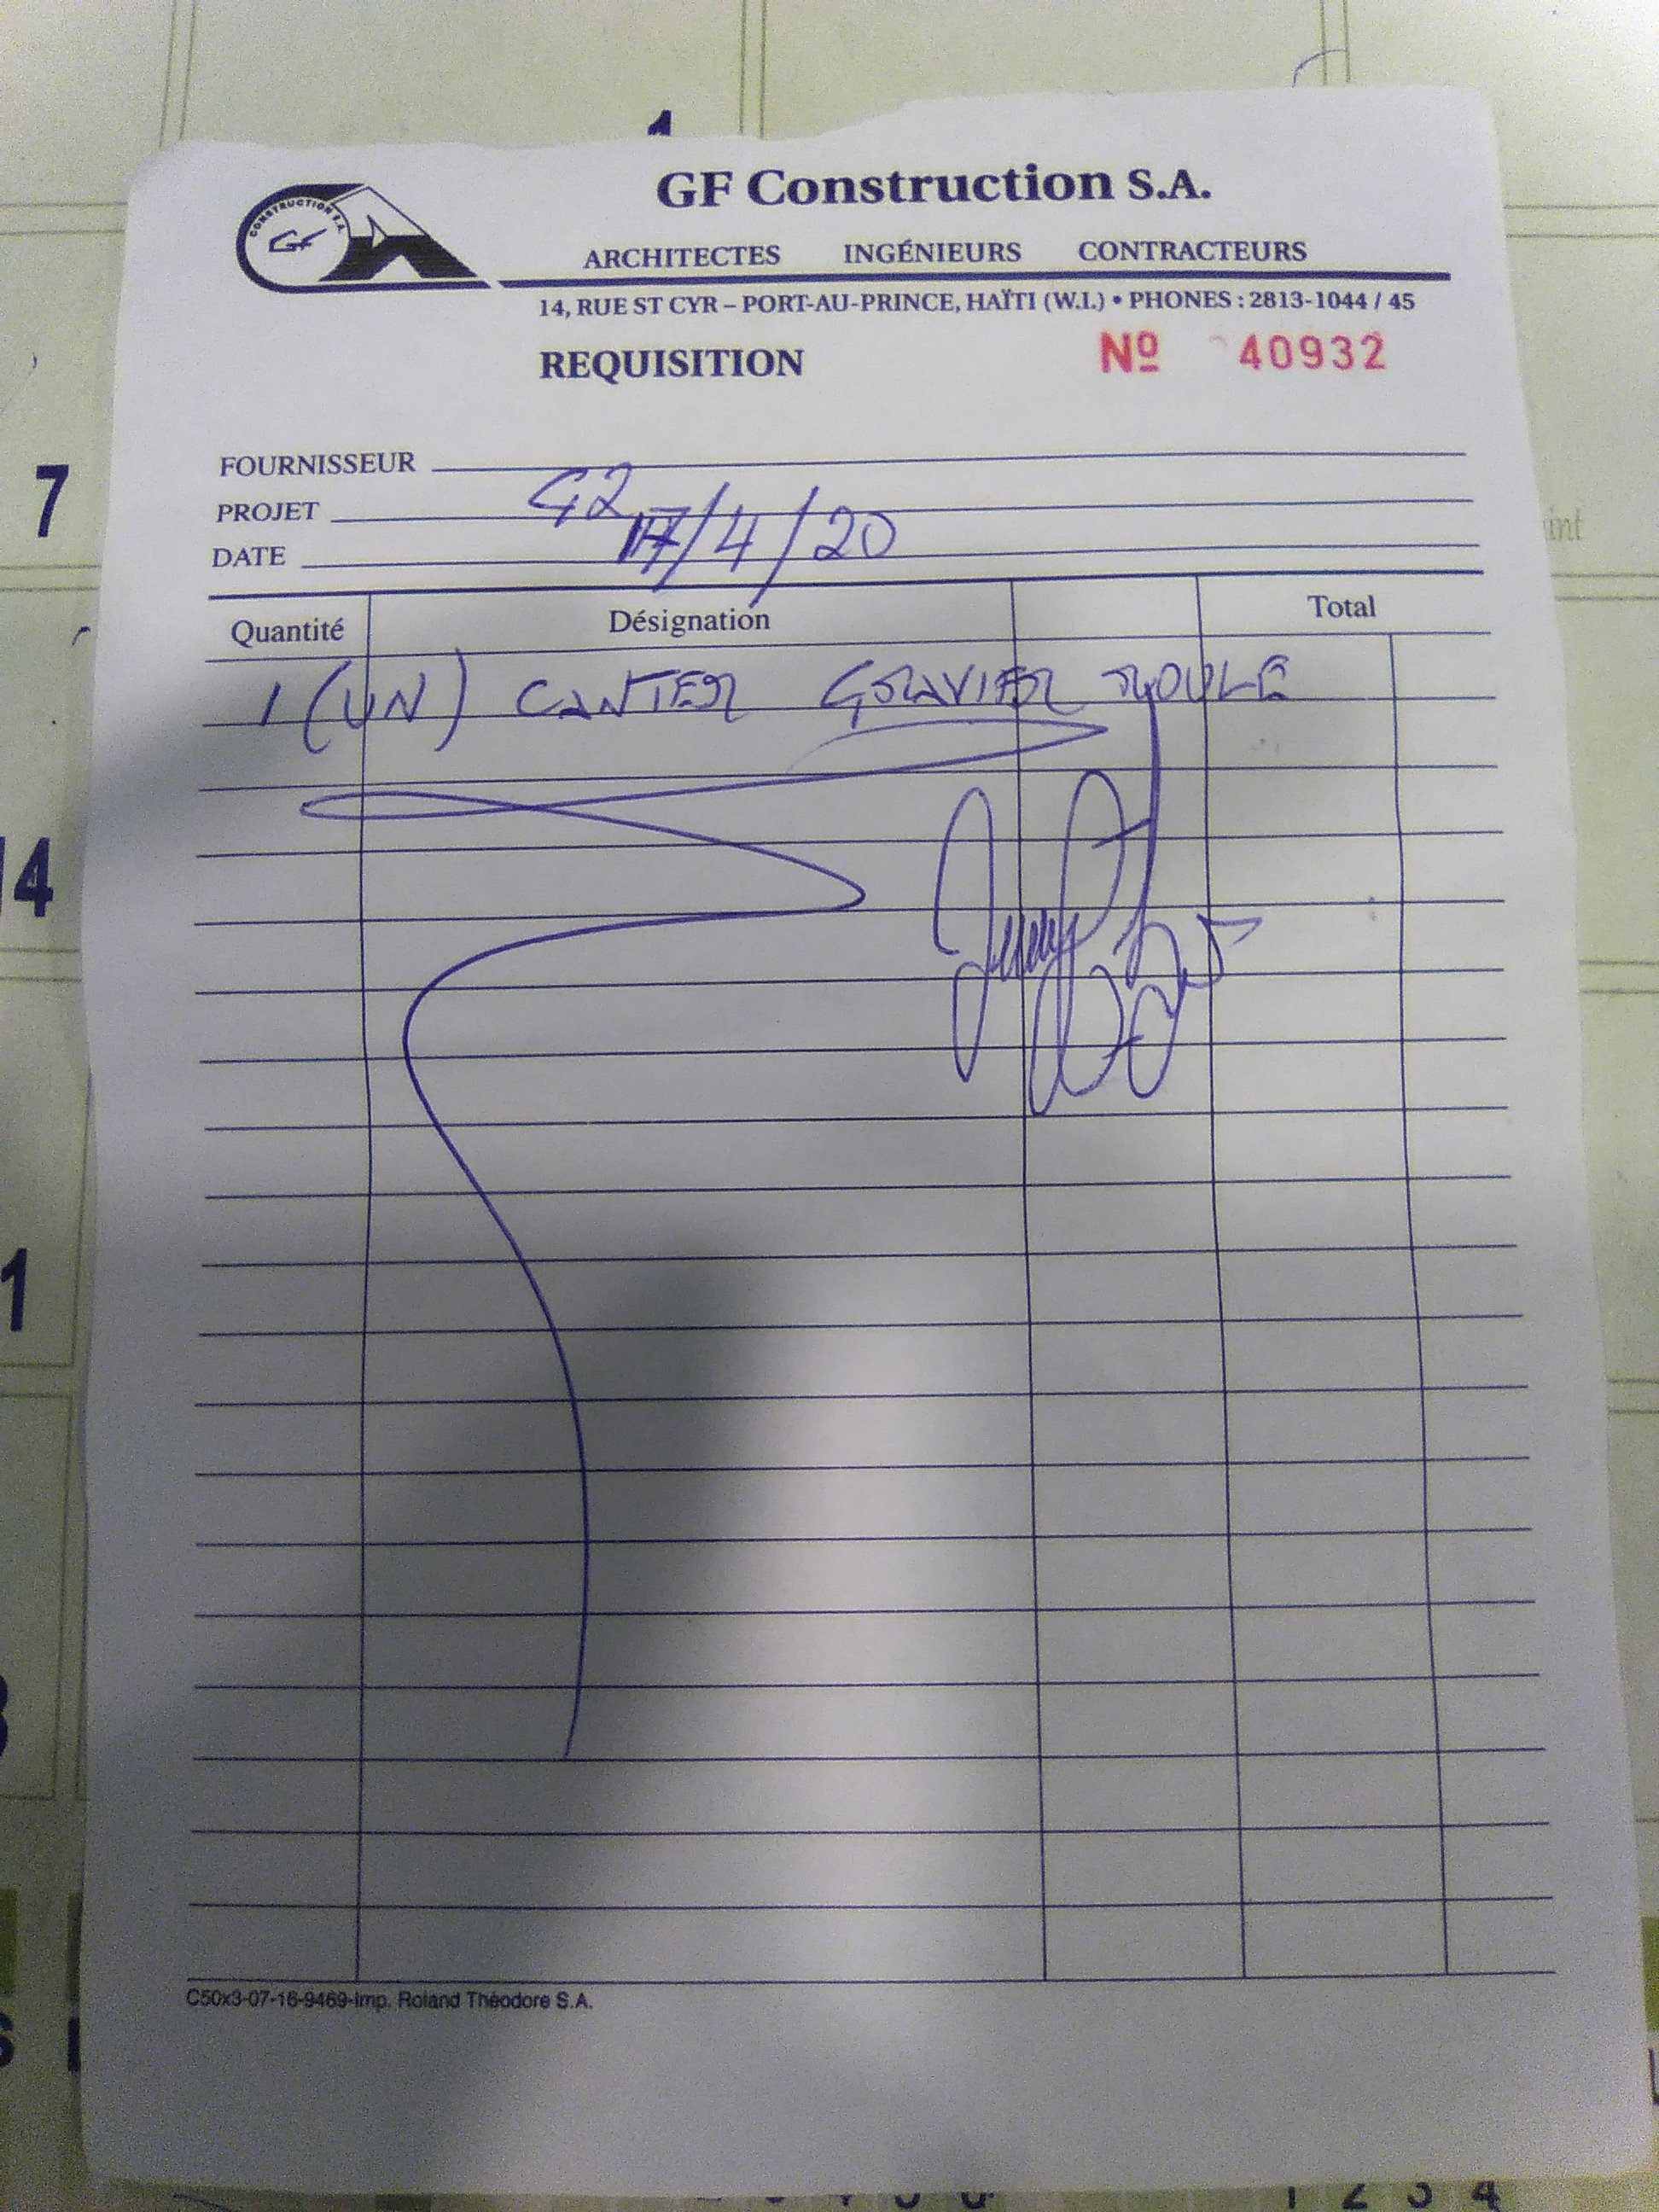 1
GF Construction S.A.
CONSTRUCTION S.A.
GF
ARCHITECTES INGÉNIEURS CONTRACTEURS
14, RUE ST CYR – PORT-AU-PRINCE, HAÏTI (W.I.) • PHONES : 2813-1044 / 45
REQUISITION Nº 40932
FOURNISSEUR
7
PROJET G2
DATE 17/4/20
Quantité Désignation Total
1 (UN) CANTER GRAVIER ROULÉ
14
1
C50x3-07-16-9469-Imp. Roland Théodore S.A.
1 2 3 4